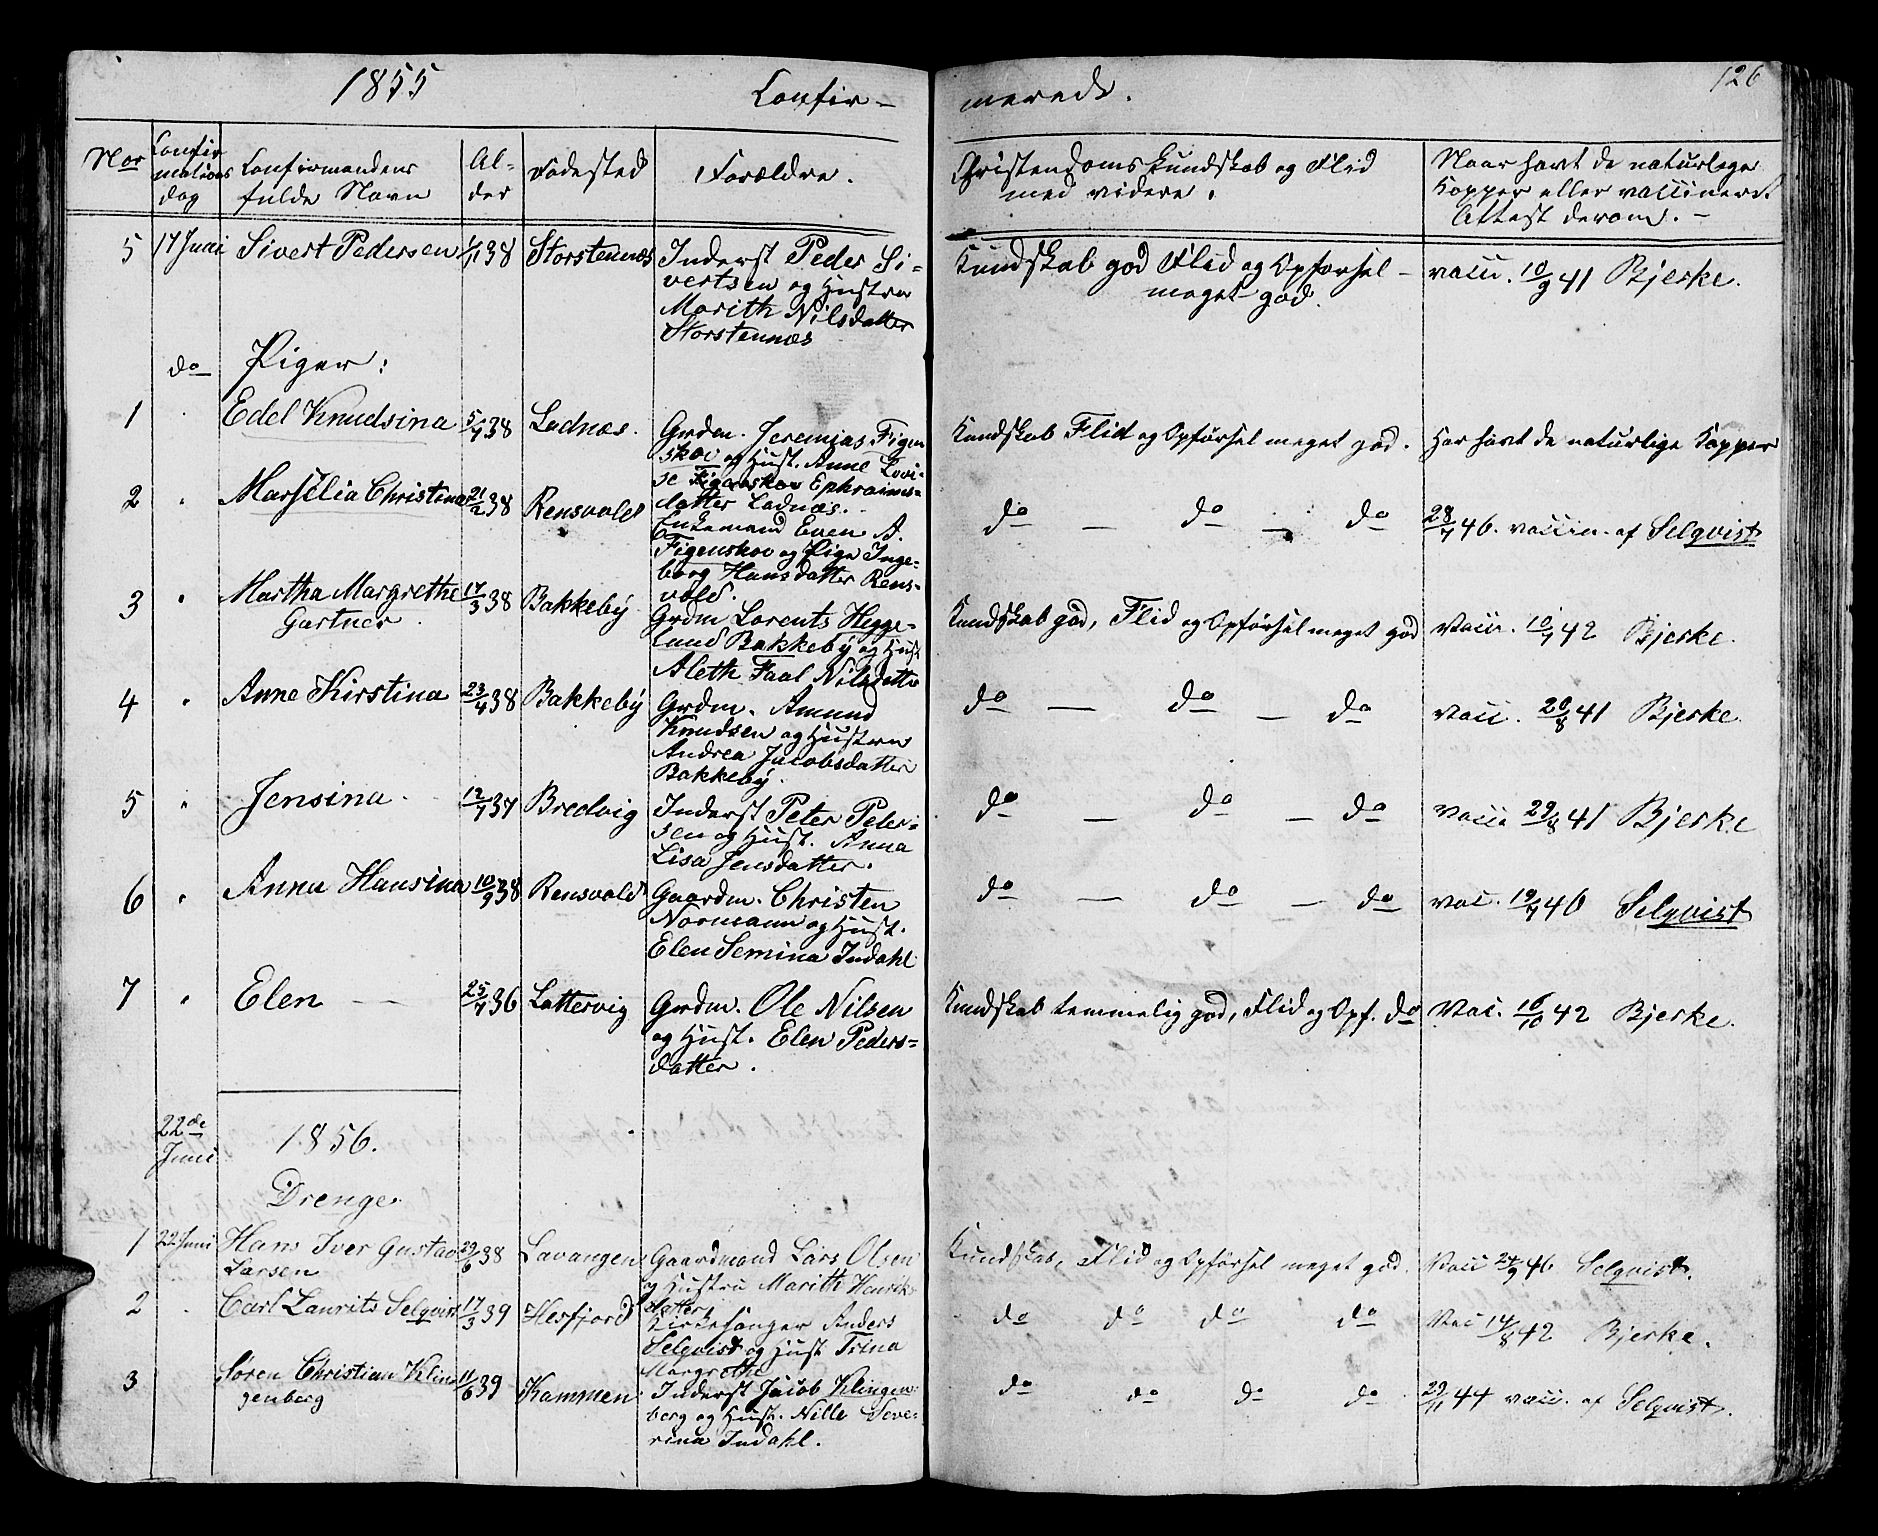 1855 Confir- merede. 126
Nor Confirmations dag Confirmandens fulde Navn Al- der Fødested Forældre. Christendoms Kundskab og Flid med videre. Naar havt de naturlige Kopper eller vaccineret. Attest derom. -
5 17 Juni Sivert Pedersen 1/11 38 Storstennæs Inderst Peder Si- Kundskab god Flid og Opførsel - vacc. 10/9 41 Bjerke.
vertsen og Hustru meget god.
Marith Nilsdatter
Storstennæs
do Piger:
1 Edel Knudsina 5/7 38 Ladnæs. Grdm. Jeremias Figen Kundskab Flid og Opførsel meget god. Har havt de naturlige Kopper
skov og Hust. Anne Lovi-
se Figenskov Ephraims-
datter Ladnæs.
2 " Marselia Christina 21/2 38 Rensvold Enkemand Even A. do - do - do 28/7 46. vaccin. af Selqvist
Figenskov og Pige Inge-
borg Hansdatter Rens-
vold.
3 " Martha Margrethe 17/3 38 Bakkeby Grdm Lorents Hegge- Kundskab god, Flid og Opførsel meget god Vacc. 10/7 42 Bjerke.
Gartner land Bakkeby og Hust
Aleth Faal Nilsdatter
4 " Anne Kirstina 23/4 38 Bakkeby Grdm. Amund do - do - do Vacc. 20/8 41 Bjerke.
Knudsen og Hustru
Andrea Jacobsdatter
Bakkeby.
5 " Jensina. 12/7 37 Bredvig Inderst Peter Peter- do - do - do Vacc 29/8 41 Bjerke
sen og Hust. Anna
Lisa Jensdatter.
6 " Anna Hansina 10/9 38 Rensvold Gaardm. Christen do - do - do Vac. 19/7 46 Selqvist
Normann og Hust.
Elen Semina Indahl
7 " Elen - 25/7 36 Lattervig Grdm. Ole Nilsen Kundskab temmelig god, Flid og Opf. do Vac. 16/10 42 Bjerke.
og Hust. Elen Peders-
datter.
22de Juni 1856.
Drenge
1 22 Juni Hans Iver Gustav 29/6 38 Lavangen Gaardmand Lars Olsen Kundskab, Flid og Opførsel meget god. Vacc 24/9 46 Selqvist.
Larsen og Hustru Marith Henrik-
datter
2 Carl Laurits Selqvist 17/3 39 Hesfjord Kirkesanger Anders do do do do Vac 14/8 42 Bjerke.
Selqvist og Hust Trina
Margrethe
3 Søren Christian Klin- 11/6 39 Kammen Inderst Jacob Klingen- do do do do 29/11 44 vacc. af Selqvist.
genberg berg og Hust. Nille Seve-
rina Indahl.